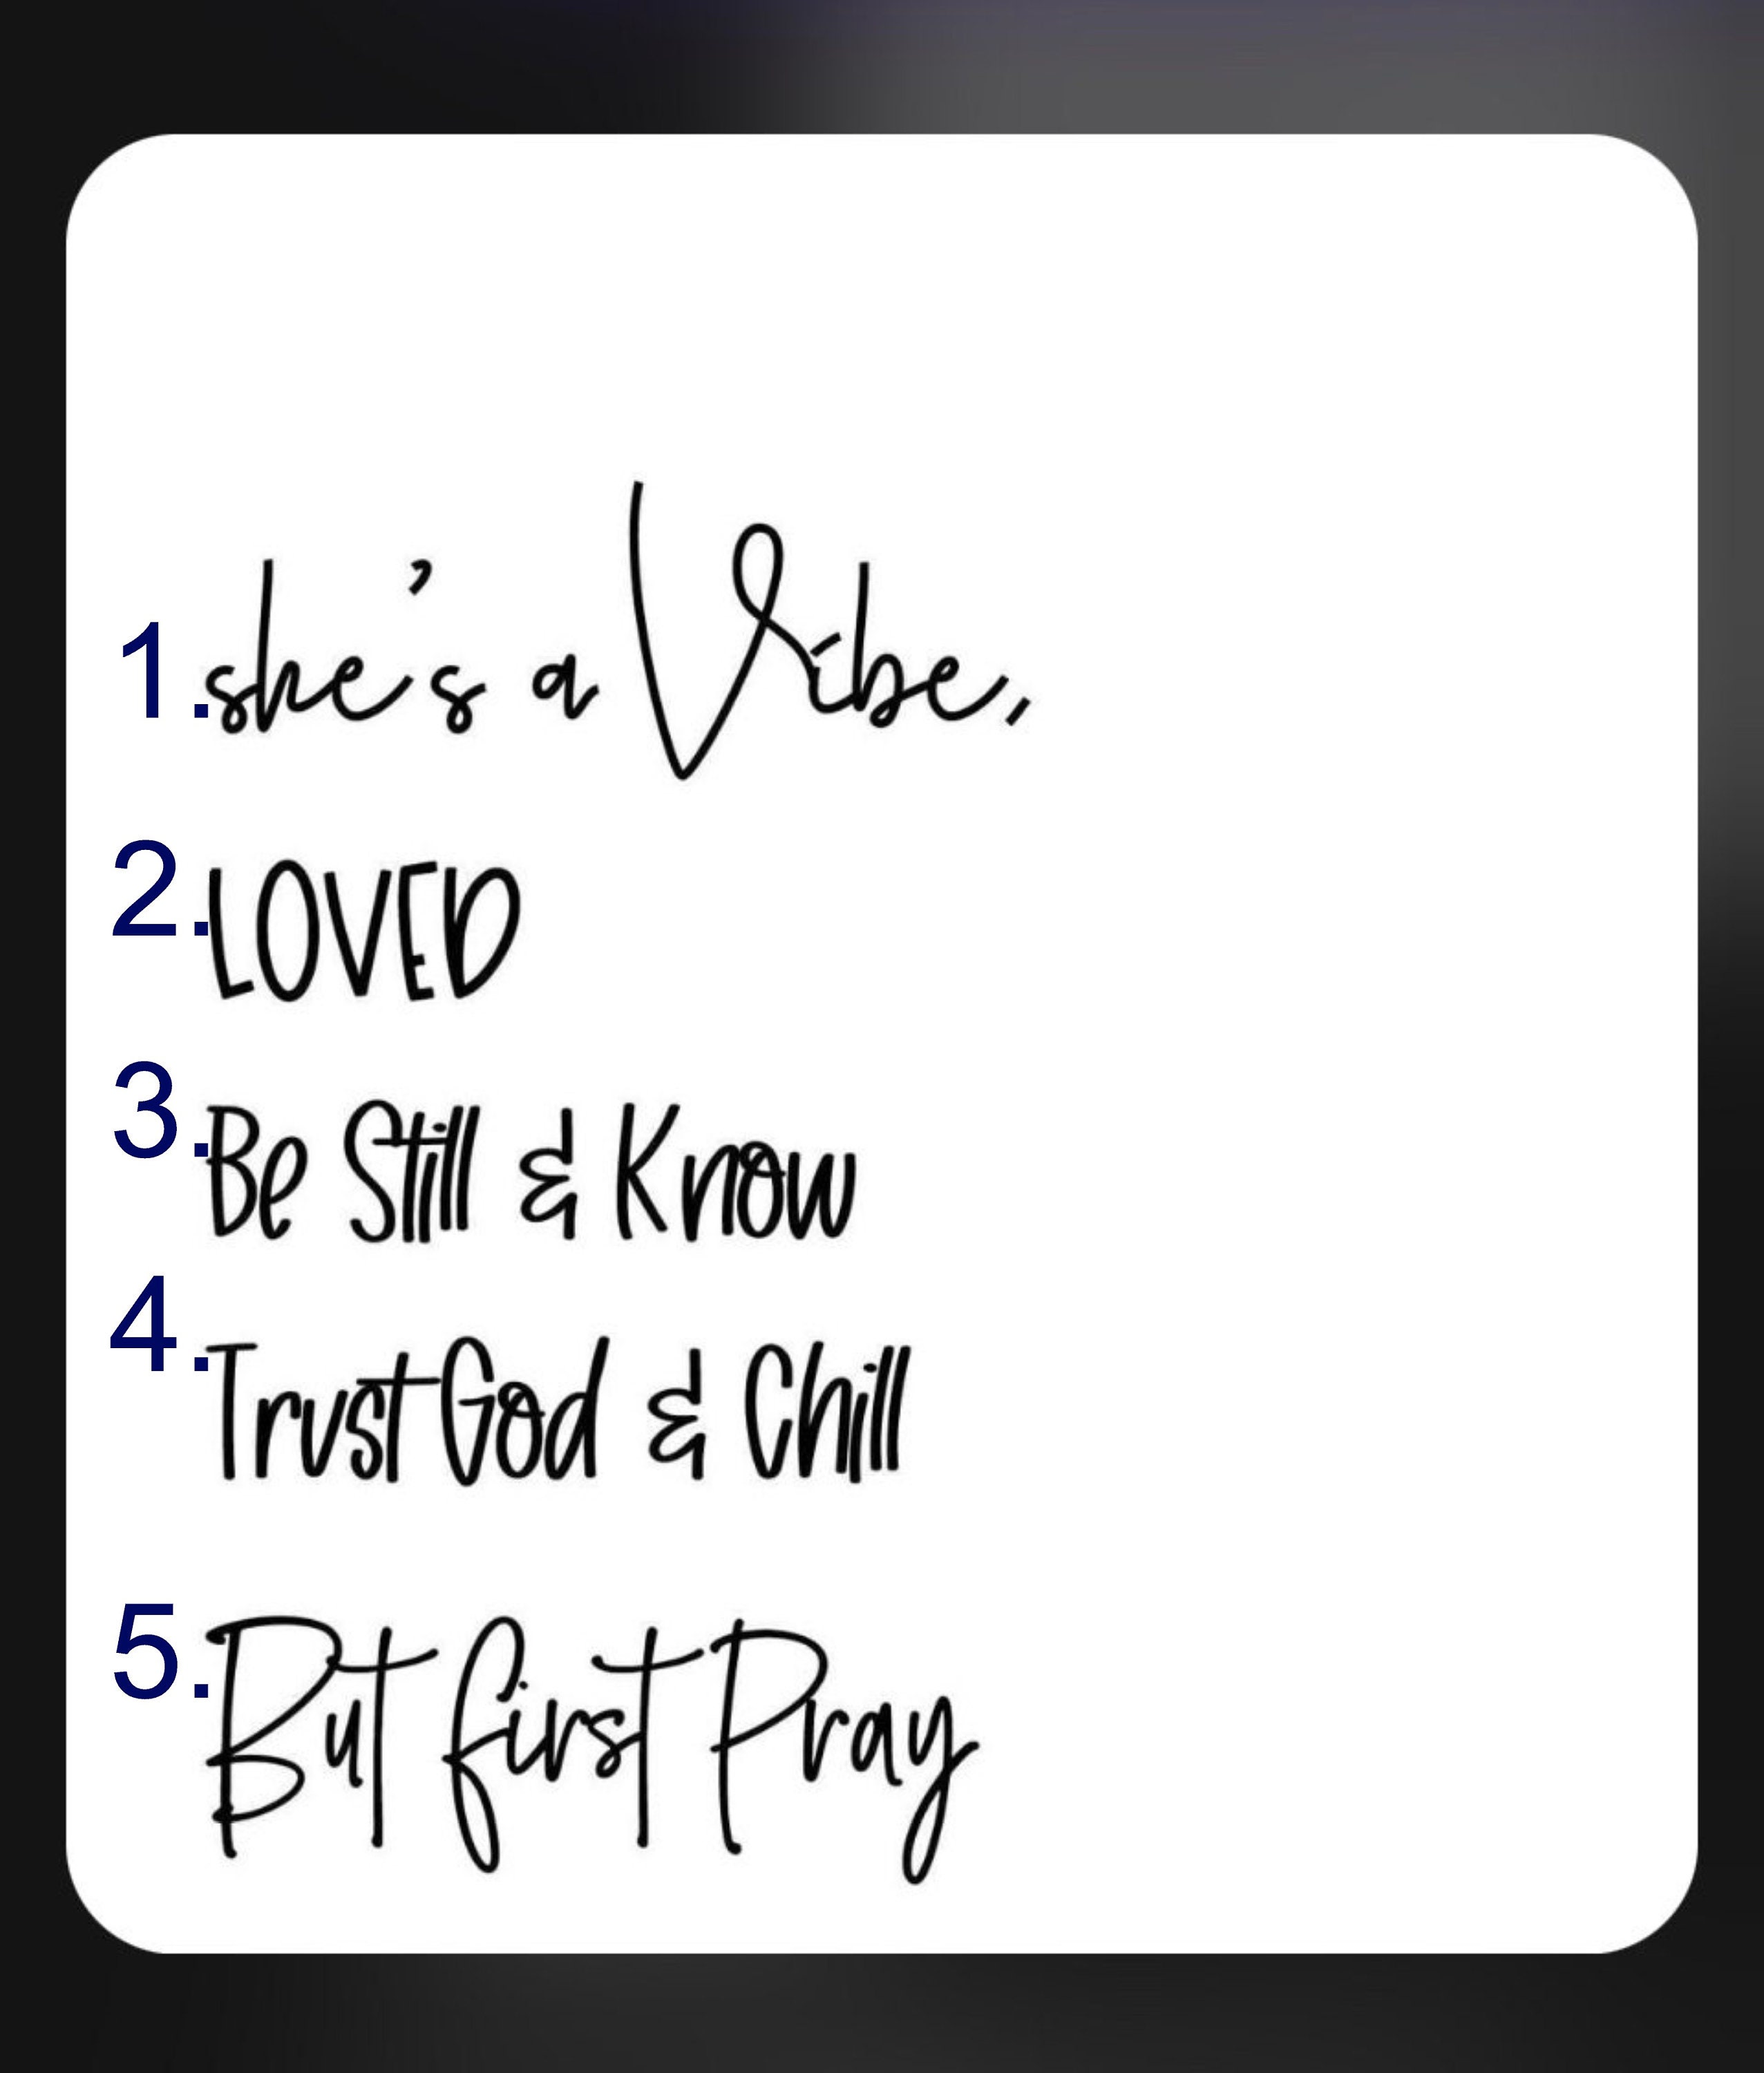 1. she's a Vibe,
2. LOVED
3. Be Still & Know
4. Trust God & Chill
5. But first Pray